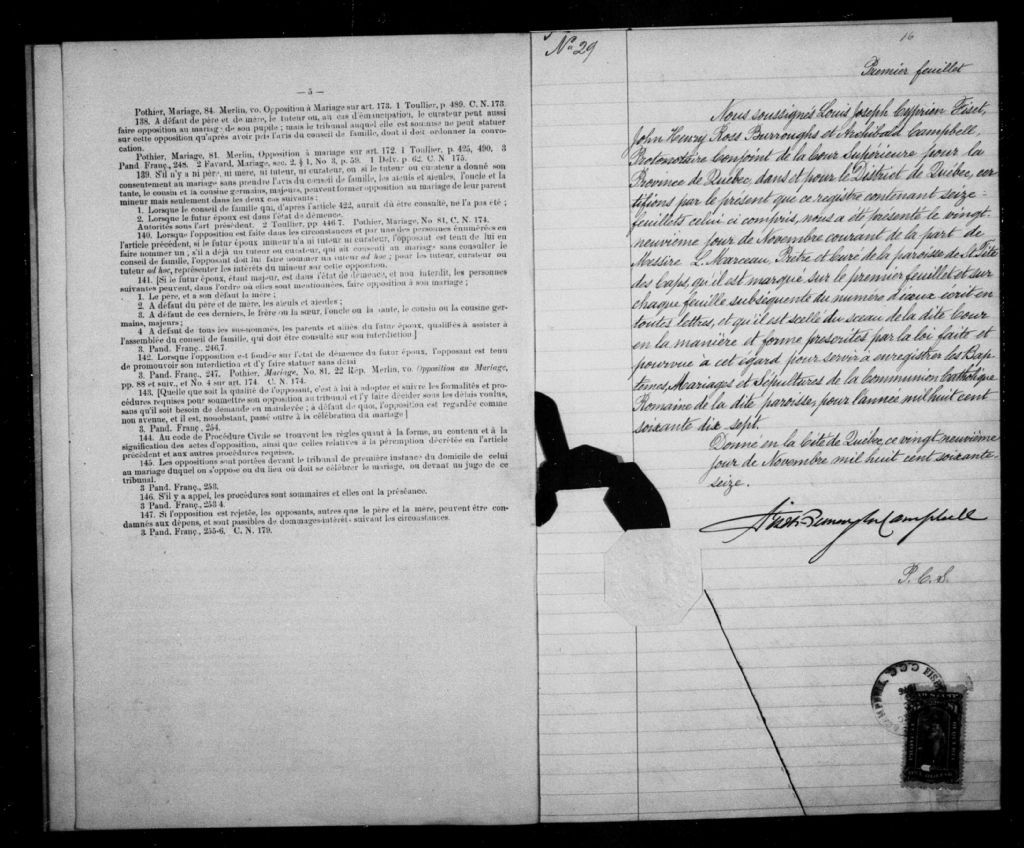 — 5 —
Pothier, Mariage, 84. Merlin, vo. Opposition à Mariage sur art. 173. 1 Toullier, p. 489. C. N. 173.
138. A défaut de père et de mère, le tuteur ou, au cas d'émancipation, le curateur peut aussi
faire opposition au mariage de son pupile; mais le tribunal auquel elle est soumise ne peut statuer
sur cette opposition qu'après avoir pris l'avis du conseil de famille, dont il doit ordonner la convo-
cation.
Pothier, Mariage, 81. Merlin, Opposition à mariage sur art. 172. 1 Toullier, p. 425, 490. 3
Pand. Franç., 248. 2 Favard, Mariage, sec. 2, § 1, No 3, p. 59. 1 Delv. p. 62. C. N 175.
139. S'il n'y a ni père, ni mère, ni tuteur, ni curateur, ou si le tuteur ou curateur a donné son
consentement au mariage sans prendre l'avis du conseil de famille, les aieuls et aieules, l'oncle et la
tante, le cousin et la cousine germains, majeurs, peuvent former opposition au mariage de leur parent
mineur mais seulement dans les deux cas suivants :
1. Lorsque le conseil de famille qui, d'après l'article 422, aurait du être consulté, ne l'a pas été ;
2. Lorsque le futur époux est dans l'état de démence.
Autorités sous l'art précédent. 2 Toullier, pp. 446 7. Pothier, Mariage, No 81, C. N. 174.
140. Lorsque l'opposition est faite dans les circonstances et par une des personnes énumérées en
l'article précédent, si le futur époux mineur n'a ni tuteur ni curateur, l'opposant est tenu de lui en
faire nommer un ; s'il a déjà un tuteur ou curateur, qui ait consenti au mariage sans consulter le
conseil de famille, l'opposant doit lui faire nommer un tuteur ad hoc ; pour les tuteur, curateur ou
tuteur ad hoc, représenter les intérêts du mineur sur cette opposition.
141. [Si le futur époux, étant majeur, est dans l'état de démence, et non interdit, les personnes
suivantes peuvent, dans l'ordre où elles sont mentionnées, faire opposition à son mariage ;
1. Le père, et à son défaut la mère ;
2. A défaut du père et de mère, les aieuls et aieules ;
3. A défaut de ces derniers, le frère ou la sœur, l'oncle ou la tante, le cousin ou la cousine ger-
mains, majeurs ;
4 A défaut de tous les sus-nommés, les parents et alliés du futur époux, qualifiés à assister à
l'assemblée du conseil de famille, qui doit être consulté sur son interdiction ]
3. Pand. Franç., 246,7.
142. Lorsque l'opposition est fondée sur l'état de démence du futur époux, l'opposant est tenu
de promouvoir son interdiction et d'y faire statuer sans délai
3. Pand. Franç., 247. Pothier, Mariage, No. 81. 22 Rép. Merlin, vo. Opposition au Mariage,
pp. 88 et suiv., et No. 4 sur art. 174. C. N. 174.
143. [Quelle que soit la qualité de l'opposant, c'est à lui à adopter et suivre les formalités et pro-
cédures requises pour soumettre son opposition au tribunal et l'y faire décider sous les délais voulus,
sans qu'il soit besoin de demande en mainlevée ; à défaut de quoi, l'opposition est regardée comme
non avenue, et il est, nonobstant, passé outre à la célébration du mariage ]
3. Pand. Franç., 254.
144. Au code de Procédure Civile se trouvent les règles quant à la forme, au contenu et à la
signification des actes d'opposition, ainsi que celles relatives à la péremption décrétée en l'article
précédent et aux autres procédures requises.
145. Les oppositions sont portées devant le tribunal de première instance du domicile de celui
au mariage duquel on s'oppose ou du lieu où doit se célébrer le mariage, ou devant un juge de ce
tribunal.
3 Pand. Franç., 253.
146. S'il y a appel, les procédures sont sommaires et elles ont la préséance.
3 Pand. Franç., 253 4.
147. Si l'opposition est rejetée, les opposants, autres que le père et la mère, peuvent être con-
damnés aux dépens, et sont passibles de dommages-intérêt, suivant les circonstances.
3 Pand. Franç., 255-6. C. N. 179.
No 29
16
Premier feuillet
Nous soussignés Louis Joseph Cyprien Fiset,
John Henry Ross Burroughs et Archibald Campbell,
Protonotaire Conjoint de la Cour Supérieure pour la
Province de Québec, dans et pour le District de Québec, cer-
tifions par le présent que ce registre contenant seize
feuillets celui ci compris, nous a été présenté le vingt
neuvième jour de Novembre courant de la part de
Messire L. Marceau, Prêtre et Curé de la paroisse de St Tite
des Caps, qu'il est marqué sur le premier feuillet et sur
chaque feuille subséquente du numéro d'iceux écrit en
toutes lettres, et qu'il est scellé du sceau de la dite Cour
en la manière et forme prescrites par la loi faite et
pourvue à cet égard pour servir à enregistrer les Bap-
têmes, Mariages et Sépultures de la Communion Catholique
Romaine de la dite paroisse, pour l'année mil huit cent
soixante dix sept.
Donné en la Cité de Québec, ce vingt neuvième
jour de Novembre mil huit cent soixante-
seize.
Fiset Burroughs Campbell
P. C. S.